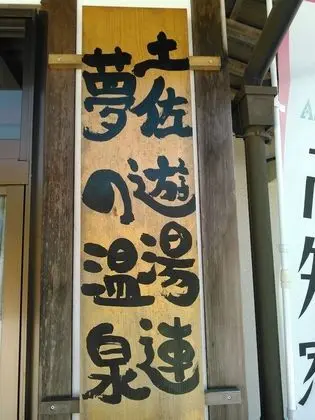 土佐遊湯連
夢の温泉
高知家